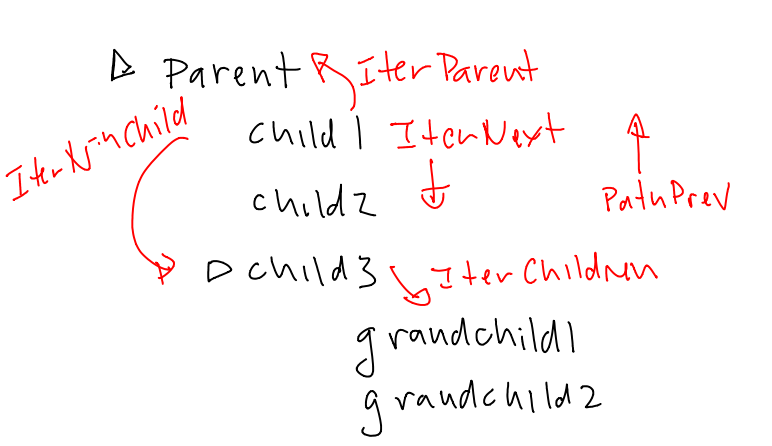 Parent IterParent
IterNthChild
child1 IterNext
child2 PathPrev
child3 IterChildren
grandchild1
grandchild2